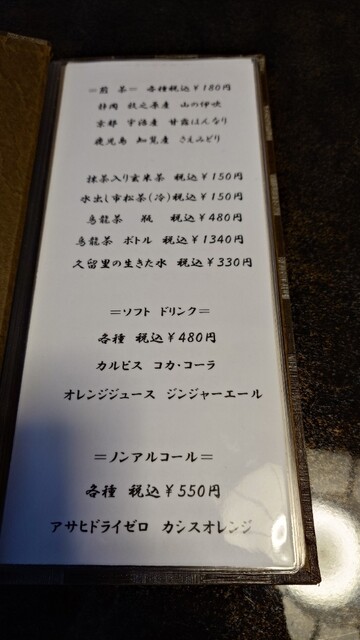 ＝煎 茶＝ 各種税込￥180円
静岡 牧之原産 山の伊吹
京都 宇治産 甘露はんなり
鹿児島 知覧産 さえみどり
抹茶入り玄米茶 税込￥150円
水出し市松茶(冷)税込￥150円
烏龍茶 瓶 税込￥480円
烏龍茶 ボトル 税込￥1340円
久留里の生きた水 税込￥330円
＝ソフト ドリンク＝
各種 税込￥480円
カルピス コカ・コーラ
オレンジジュース ジンジャーエール
＝ノンアルコール＝
各種 税込￥550円
アサヒドライゼロ カシスオレンジ